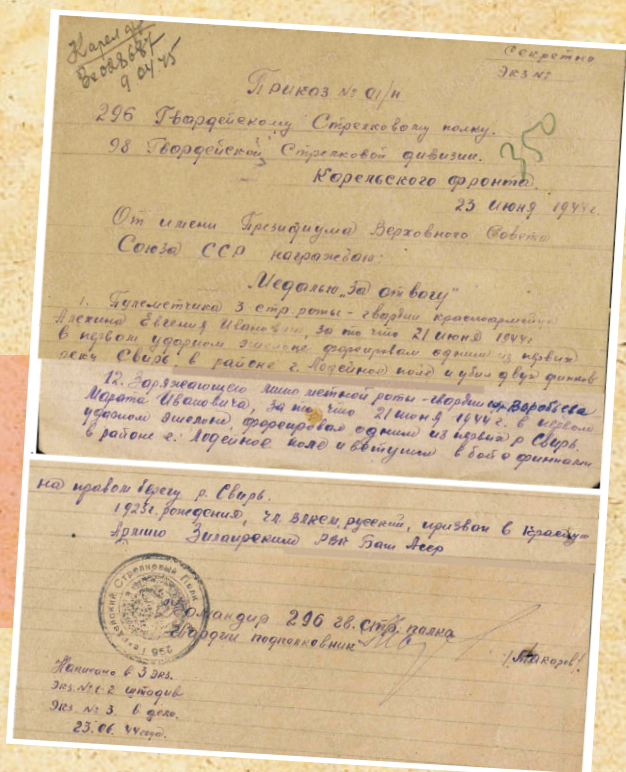 Карел фр
Вх 028687
9 04 45
Секретно
Экз №
Приказ № 01/н
296 Гвардейскому Стрелковому полку.
98 Гвардейской Стрелковой дивизии.
350
Карельского фронта.
23 июня 1944 г.
От имени Президиума Верховного Совета
Союза ССР награждаю:
Медалью „За отвагу"
1. Пулеметчика 3 стр. роты - гвардии красноармейца
Алехина Евгения Ивановича, за то что 21 июня 1944 г.
в первом ударном эшелоне форсировал одним из первых
реку Свирь в районе г. Лодейное поле и убил двух финнов
12. Заряжающего минометной роты - гвардии кр. Воробьева
Марата Ивановича, за то что 21 июня 1944 г. в первом
ударном эшелоне, форсировал одним из первых р. Свирь
в районе г. Лодейное поле и вступил в бой с финнами
на правом берегу р. Свирь.
1925 г. рождения, чл. ВЛКСМ, русский, призван в Красную
Армию Зилаирским РВК Баш Асср
Командир 296 гв. стр. полка
гвардии подполковник
/Макаров/.
Написано в 3 экз.
Экз. № 1-2 штадив
Экз. № 3. в дело.
23.06.44 года.